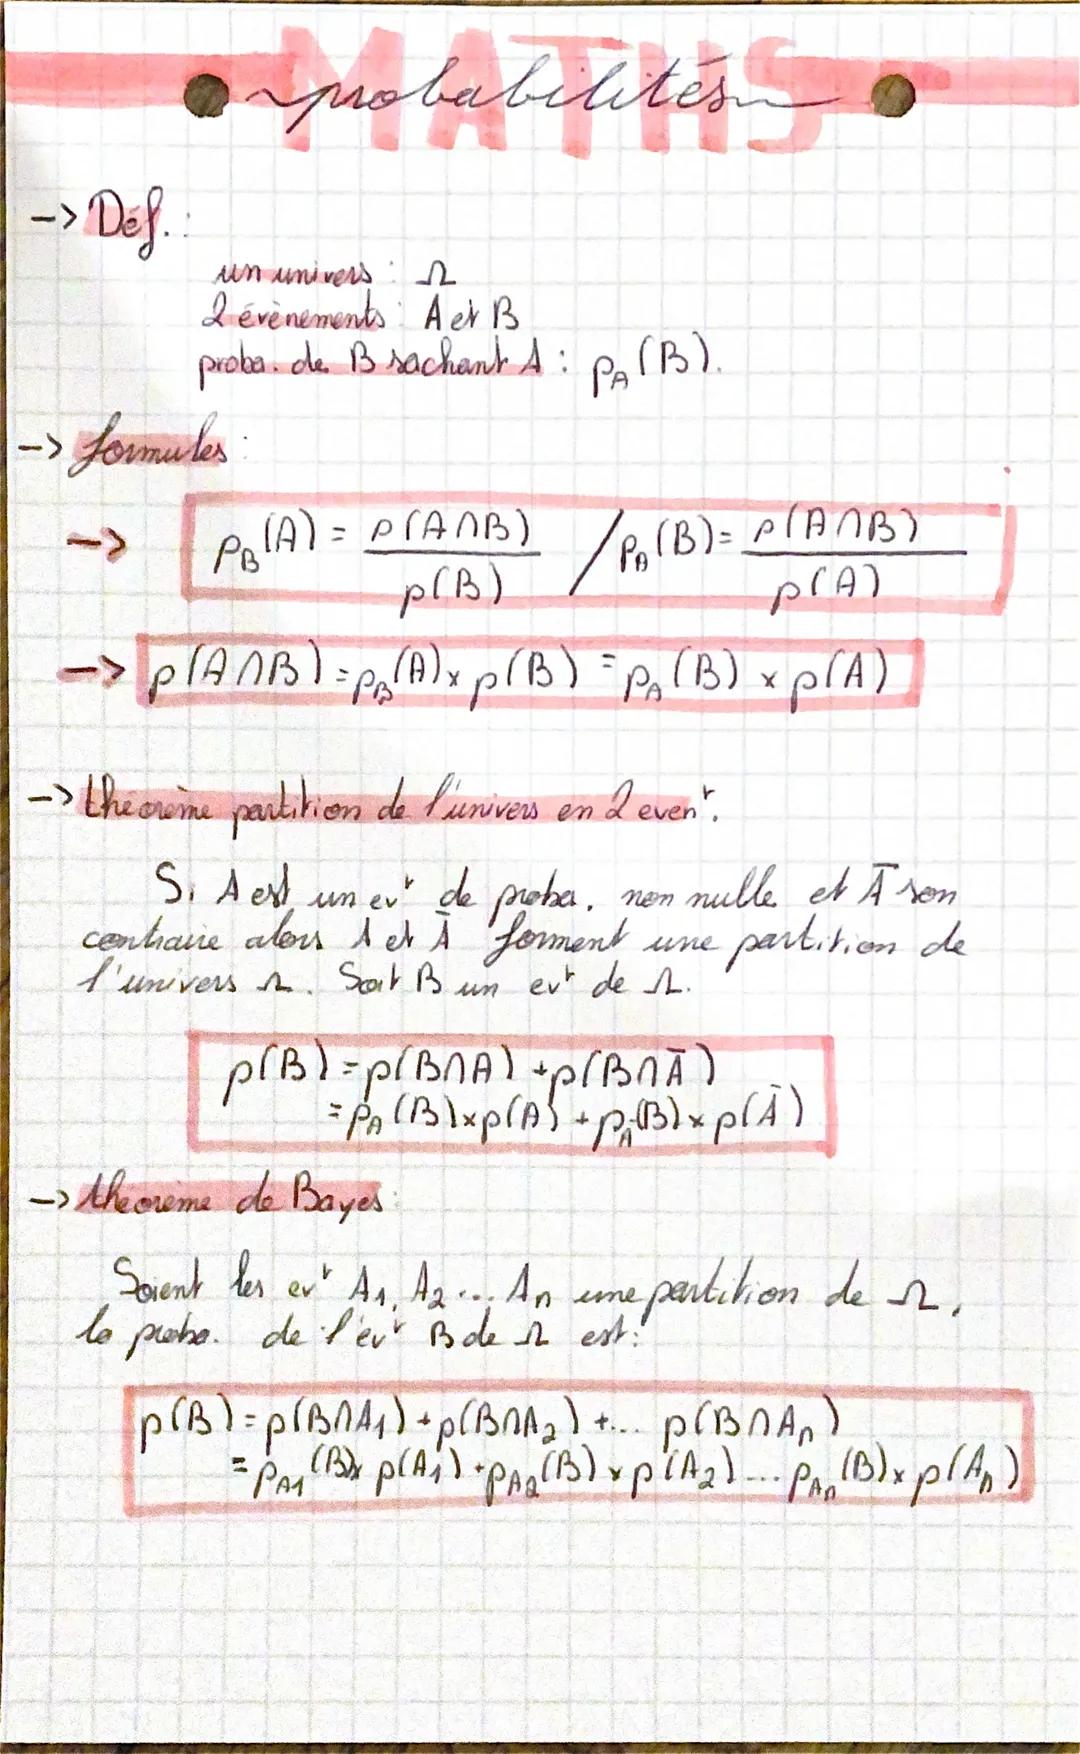 MATHS
probabilités
-> Déf. :
un univers : Ω
2 évènements : A et B
proba. de B sachant A : pA(B).
-> formules :
-> pB(A) = p(A∩B)/p(B) / pA(B) = p(A∩B)/p(A)
-> p(A∩B) = pB(A) x p(B) = pA(B) x p(A)
-> théorème partition de l'univers en 2 evenᵗ.
Si A est un evᵗ de proba. non nulle et Ā son
contraire alors A et Ā forment une partition de
l'univers Ω. Soit B un evᵗ de Ω.
p(B) = p(B∩A) + p(B∩Ā)
= pA(B) x p(A) + pĀ(B) x p(Ā)
-> théorème de Bayes :
Soient les evᵗ A1, A2 ... An une partition de Ω,
la proba. de l'evᵗ B de Ω est :
p(B) = p(B∩A1) + p(B∩A2) + ... p(B∩An)
= pA1(B) x p(A1) + pA2(B) x p(A2) ... pAn(B) x p(An)